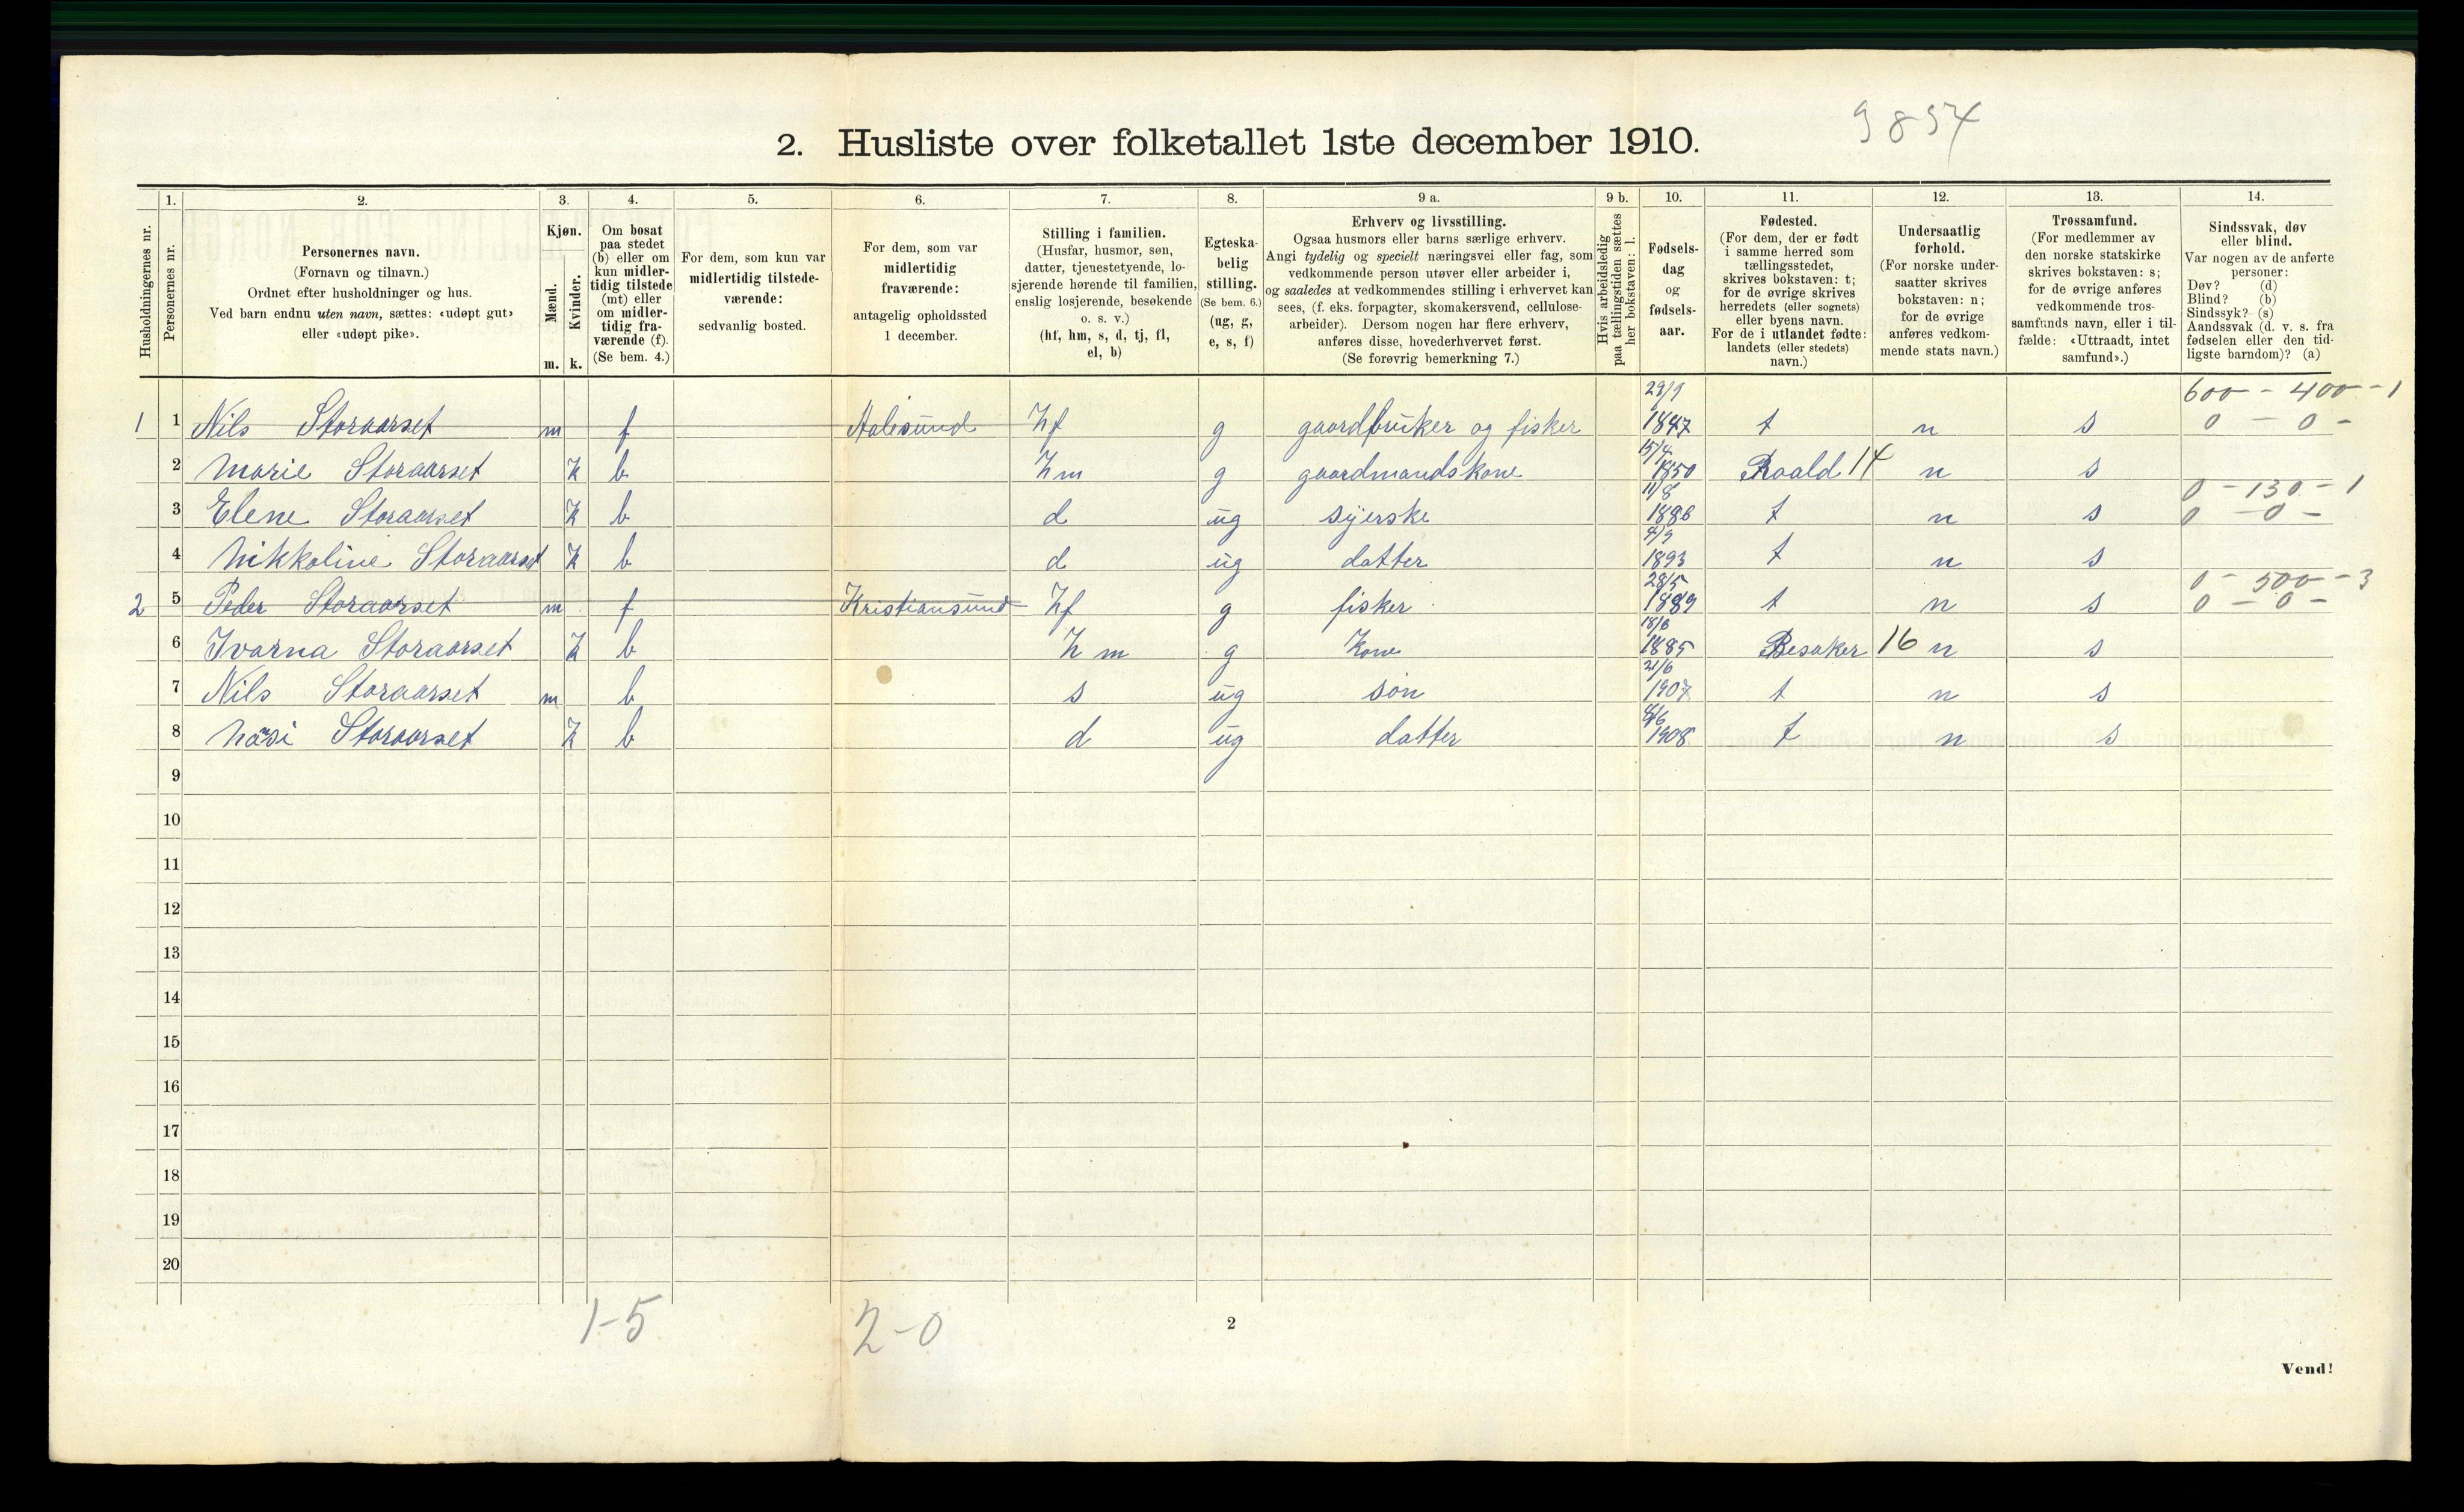 9854
2. Husliste over folketallet 1ste december 1910.
Husholdningernes nr.
1.
Personernes nr.
2.
Personernes navn.
(Fornavn og tilnavn.)
Ordnet efter husholdninger og hus.
Ved barn endnu uten navn, sættes: «udøpt gut»
eller «udøpt pike».
3.
Kjøn.
Mænd.
Kvinder.
m. k.
4.
Om bosat
paa stedet
(b) eller om
kun midler-
tidig tilstede
(mt) eller
om midler-
tidig fra-
værende (f).
(Se bem. 4.)
5.
For dem, som kun var
midlertidig tilstede-
værende:
sedvanlig bosted.
6.
For dem, som var
midlertidig
fraværende:
antagelig opholdssted
1 december.
7.
Stilling i familien.
(Husfar, husmor, søn,
datter, tjenestetyende, lo-
sjerende hørende til familien,
enslig losjerende, besøkende
o. s. v.)
(hf, hm, s, d, tj, fl,
el, b)
8.
Egteska-
belig
stilling.
(Se bem. 6.)
(ug, g,
e, s, f)
9 a.
Erhverv og livsstilling.
Ogsaa husmors eller barns særlige erhverv.
Angi tydelig og specielt næringsvei eller fag, som
vedkommende person utøver eller arbeider i,
og saaledes at vedkommendes stilling i erhvervet kan
sees, (f. eks. forpagter, skomakersvend, cellulose-
arbeider). Dersom nogen har flere erhverv,
anføres disse, hovederhvervet først.
(Se forøvrig bemerkning 7.)
9 b.
Hvis arbeidsledig
paa tællingstiden sættes
her bokstaven: l.
10.
Fødsels-
dag
og
fødsels-
aar.
11.
Fødested.
(For dem, der er født
i samme herred som
tællingsstedet,
skrives bokstaven: t;
for de øvrige skrives
herredets (eller sognets)
eller byens navn.
For de i utlandet fødte:
landets (eller stedets)
navn.)
12.
Undersaatlig
forhold.
(For norske under-
saatter skrives
bokstaven: n;
for de øvrige
anføres vedkom-
mende stats navn.)
13.
Trossamfund.
(For medlemmer av
den norske statskirke
skrives bokstaven: s;
for de øvrige anføres
vedkommende tros-
samfunds navn, eller i til-
fælde: «Uttraadt, intet
samfund».)
14.
Sindssvak, døv
eller blind.
Var nogen av de anførte
personer:
Døv? (d)
Blind? (b)
Sindssyk? (s)
Aandssvak (d. v. s. fra
fødselen eller den tid-
ligste barndom)? (a)
600 - 400 - 1
1 1 Nils Storaarset m f Aalesund hf g gaardbruker og fisker 29/9 1847 t n s 0 - 0 -
2 Marie Storaarset k b hm g gaardmandskone 15/4 1850 Roald 14 n s
0 - 130 - 1
3 Elene Storaarset k b d ug syerske 11/8 1886 t n s 0 - 0 -
4 Nikkoline Storaarset k b d ug datter 4/9 1893 t n s
0 - 500 - 3
2 5 Peder Storaarset m f Kristiansund hf g fisker 28/5 1889 t n s 0 - 0 -
6 Ivarna Storaarset k b hm g kone 18/6 1885 Besaker 16 n s
7 Nils Storaarset m b s ug søn 21/6 1907 t n s
8 Storaarset k b d ug datter 1908 t n s
9
10
11
12
13
14
15
16
17
18
19
20
1-5 2-0
2
Vend!